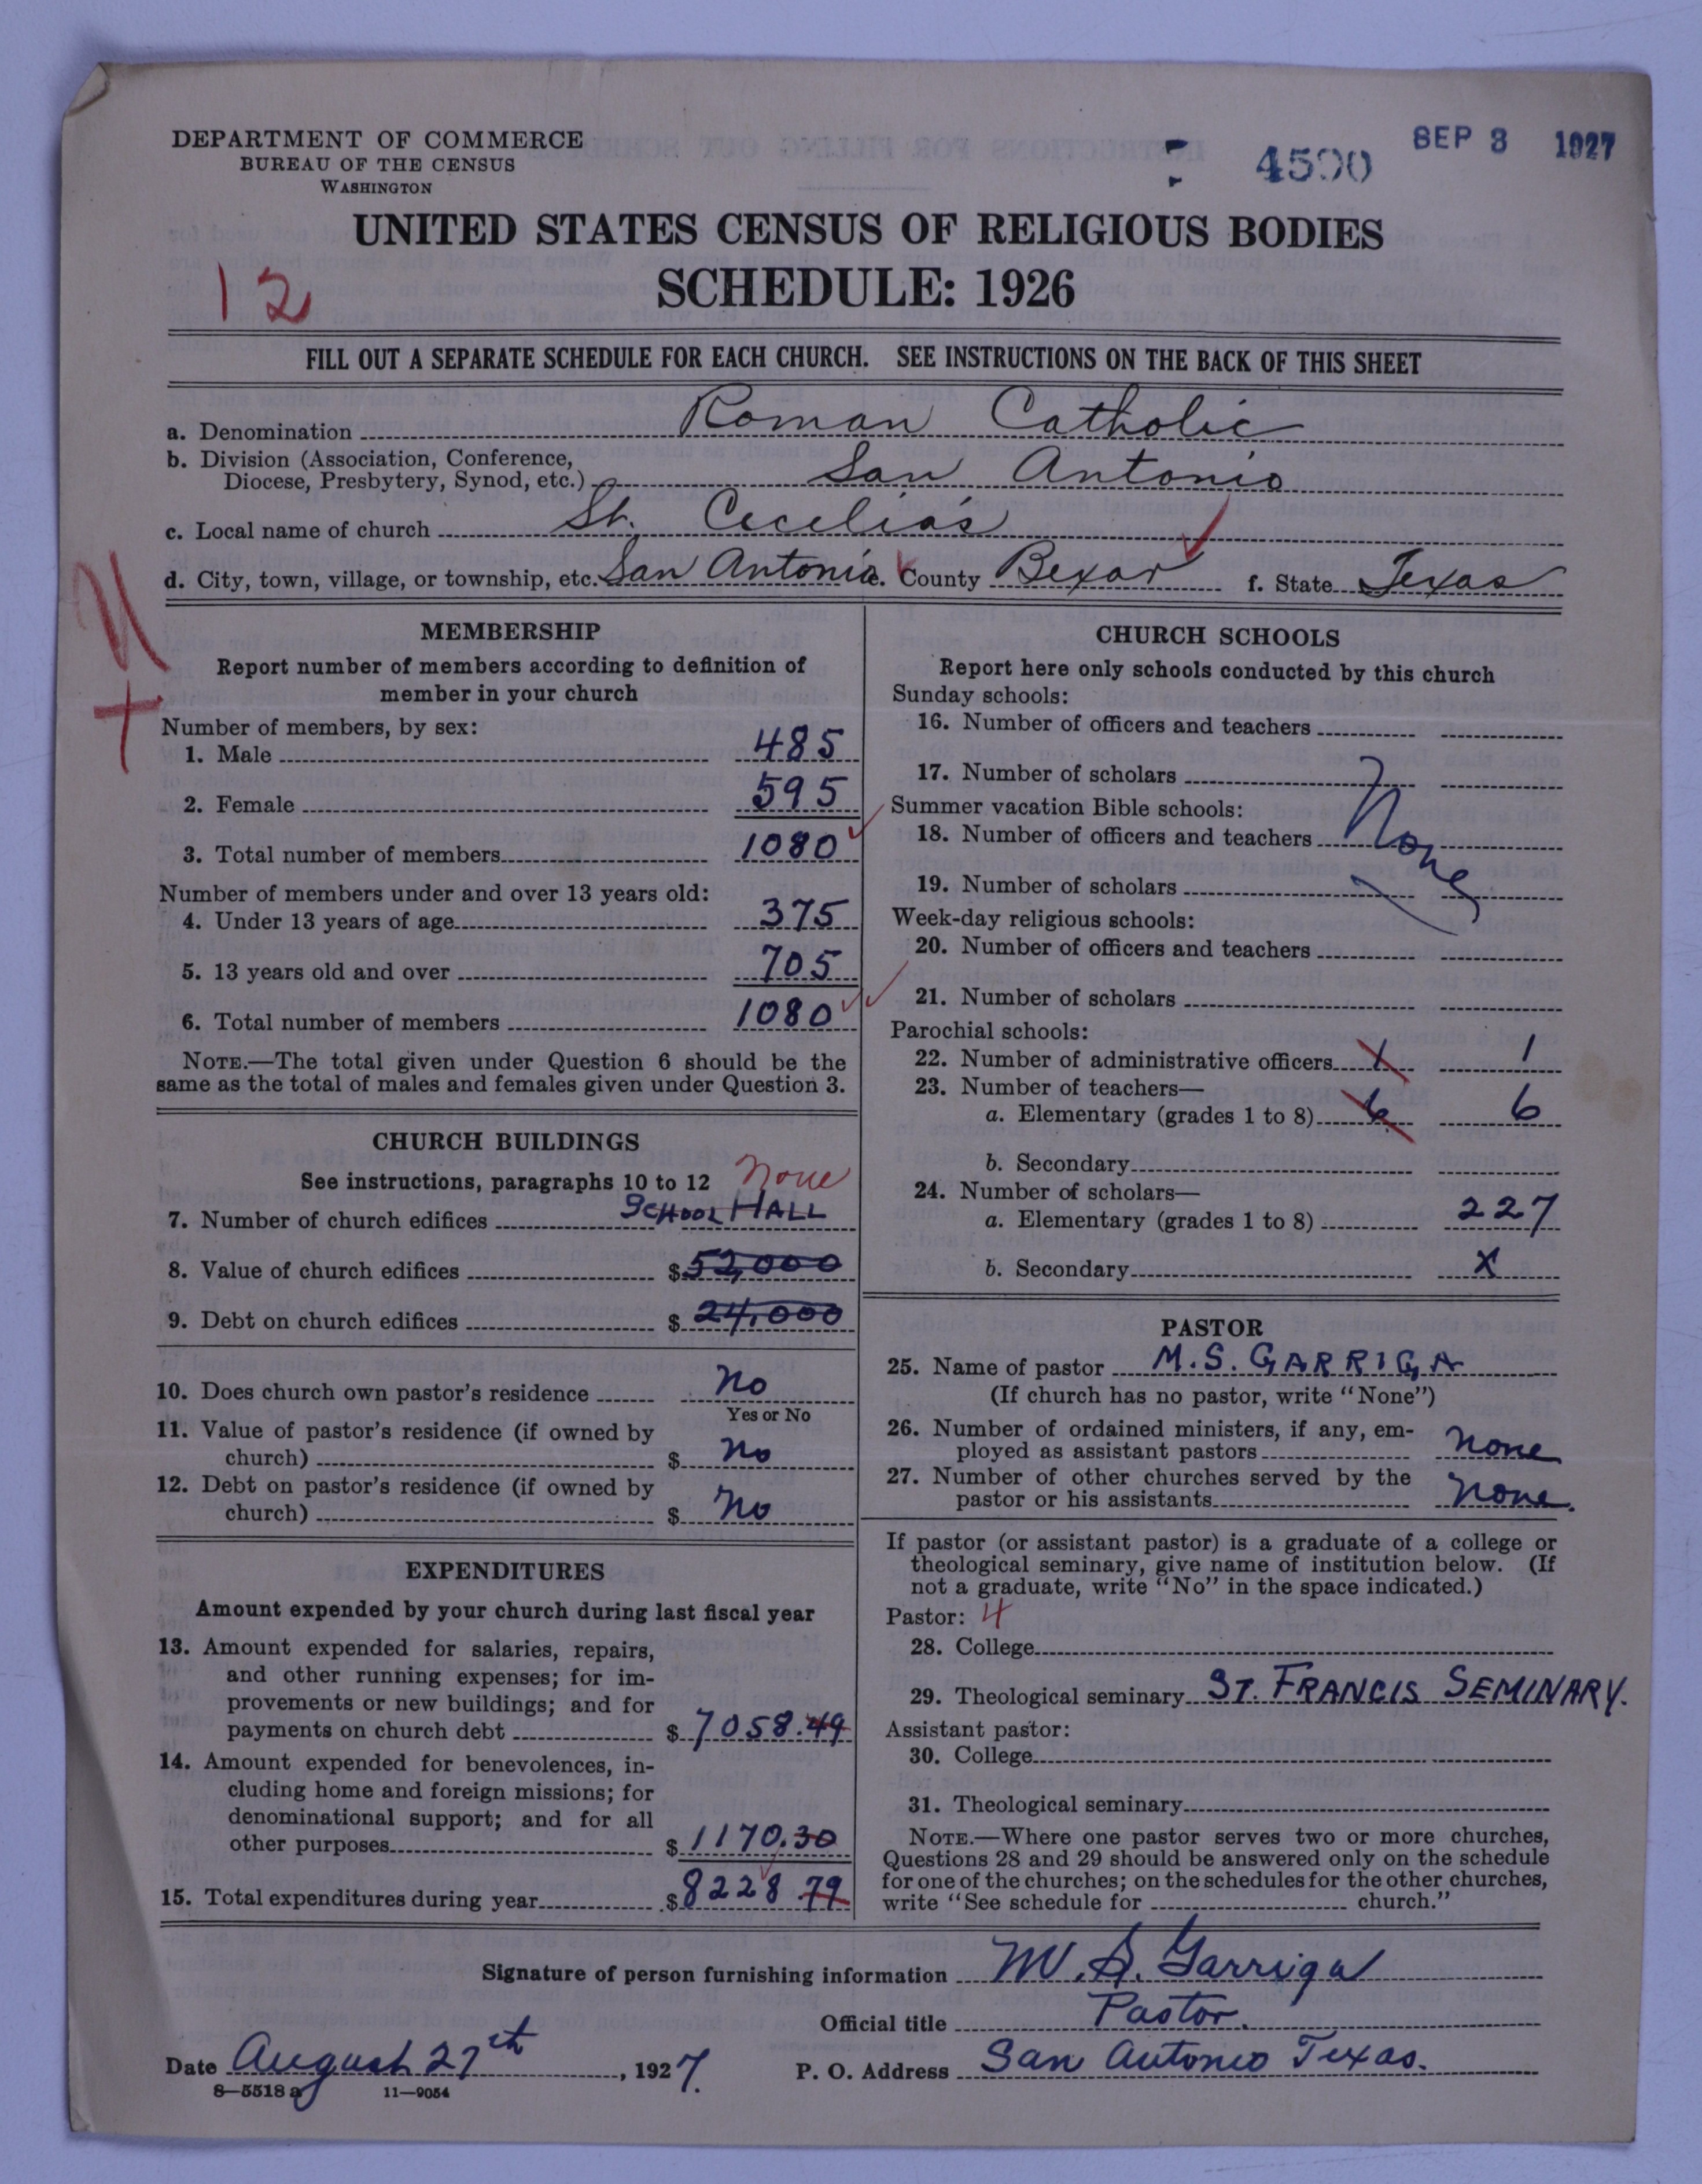 DEPARTMENT OF COMMERCE
BUREAU OF THE CENSUS
WASHINGTON
4590
SEP 3 1927
UNITED STATES CENSUS OF RELIGIOUS BODIES
SCHEDULE: 1926
12
FILL OUT A SEPARATE SCHEDULE FOR EACH CHURCH. SEE INSTRUCTIONS ON THE BACK OF THIS SHEET
a. Denomination Roman Catholic
b. Division (Association, Conference,
Diocese, Presbytery, Synod, etc.) San Antonio
c. Local name of church St. Cecelia's
d. City, town, village, or township, etc. San Antonio e. County Bexar f. State Texas
MEMBERSHIP
Report number of members according to definition of
member in your church
Number of members, by sex:
1. Male 485
2. Female 595
3. Total number of members 1080
Number of members under and over 13 years old:
4. Under 13 years of age 375
5. 13 years old and over 705
6. Total number of members 1080
NOTE.—The total given under Question 6 should be the
same as the total of males and females given under Question 3.
CHURCH BUILDINGS
See instructions, paragraphs 10 to 12 None
7. Number of church edifices SCHOOL HALL
8. Value of church edifices $ 52,000
9. Debt on church edifices $ 24,000
10. Does church own pastor's residence No
Yes or No
11. Value of pastor's residence (if owned by
church) $ No
12. Debt on pastor's residence (if owned by
church) $ No
EXPENDITURES
Amount expended by your church during last fiscal year
13. Amount expended for salaries, repairs,
and other running expenses; for im-
provements or new buildings; and for
payments on church debt $ 7058.49
14. Amount expended for benevolences, in-
cluding home and foreign missions; for
denominational support; and for all
other purposes $ 1170.30
15. Total expenditures during year $ 8228 79
CHURCH SCHOOLS
Report here only schools conducted by this church
Sunday schools:
16. Number of officers and teachers
17. Number of scholars
Summer vacation Bible schools:
18. Number of officers and teachers None
19. Number of scholars
Week-day religious schools:
20. Number of officers and teachers
21. Number of scholars
Parochial schools:
22. Number of administrative officers 1 1
23. Number of teachers—
a. Elementary (grades 1 to 8) 6 6
b. Secondary
24. Number of scholars—
a. Elementary (grades 1 to 8) 227
b. Secondary x
PASTOR
25. Name of pastor M.S. GARRIGA
(If church has no pastor, write "None")
26. Number of ordained ministers, if any, em-
ployed as assistant pastors none
27. Number of other churches served by the
pastor or his assistants none.
If pastor (or assistant pastor) is a graduate of a college or
theological seminary, give name of institution below. (If
not a graduate, write "No" in the space indicated.)
Pastor: 4
28. College
29. Theological seminary ST. FRANCIS SEMINARY.
Assistant pastor:
30. College
31. Theological seminary
NOTE.—Where one pastor serves two or more churches,
Questions 28 and 29 should be answered only on the schedule
for one of the churches; on the schedules for the other churches,
write "See schedule for church."
Signature of person furnishing information M. S. Garriga
Official title Pastor.
Date August 27th, 1927. P. O. Address San Antonio Texas.
8—5518 a 11—9054